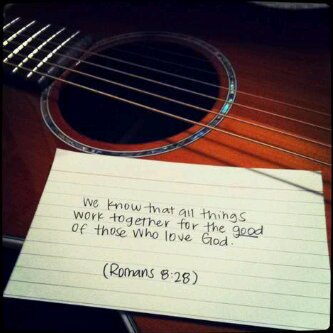 We know that all things
work together for the good
of those who love God.
(Romans 8:28)